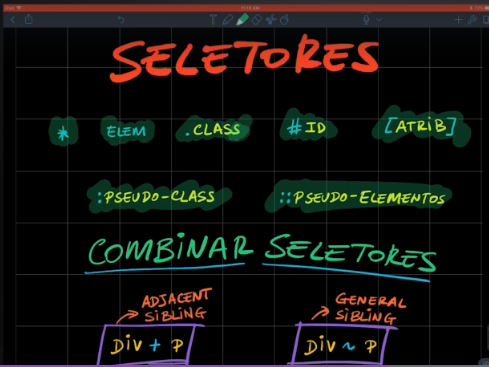 SELETORES
* ELEM .CLASS #ID [ATRIB]
:PSEUDO-CLASS ::PSEUDO-ELEMENTOS
COMBINAR SELETORES
ADJACENT
SIBLING
GENERAL
SIBLING
Div + P
Div ~ P